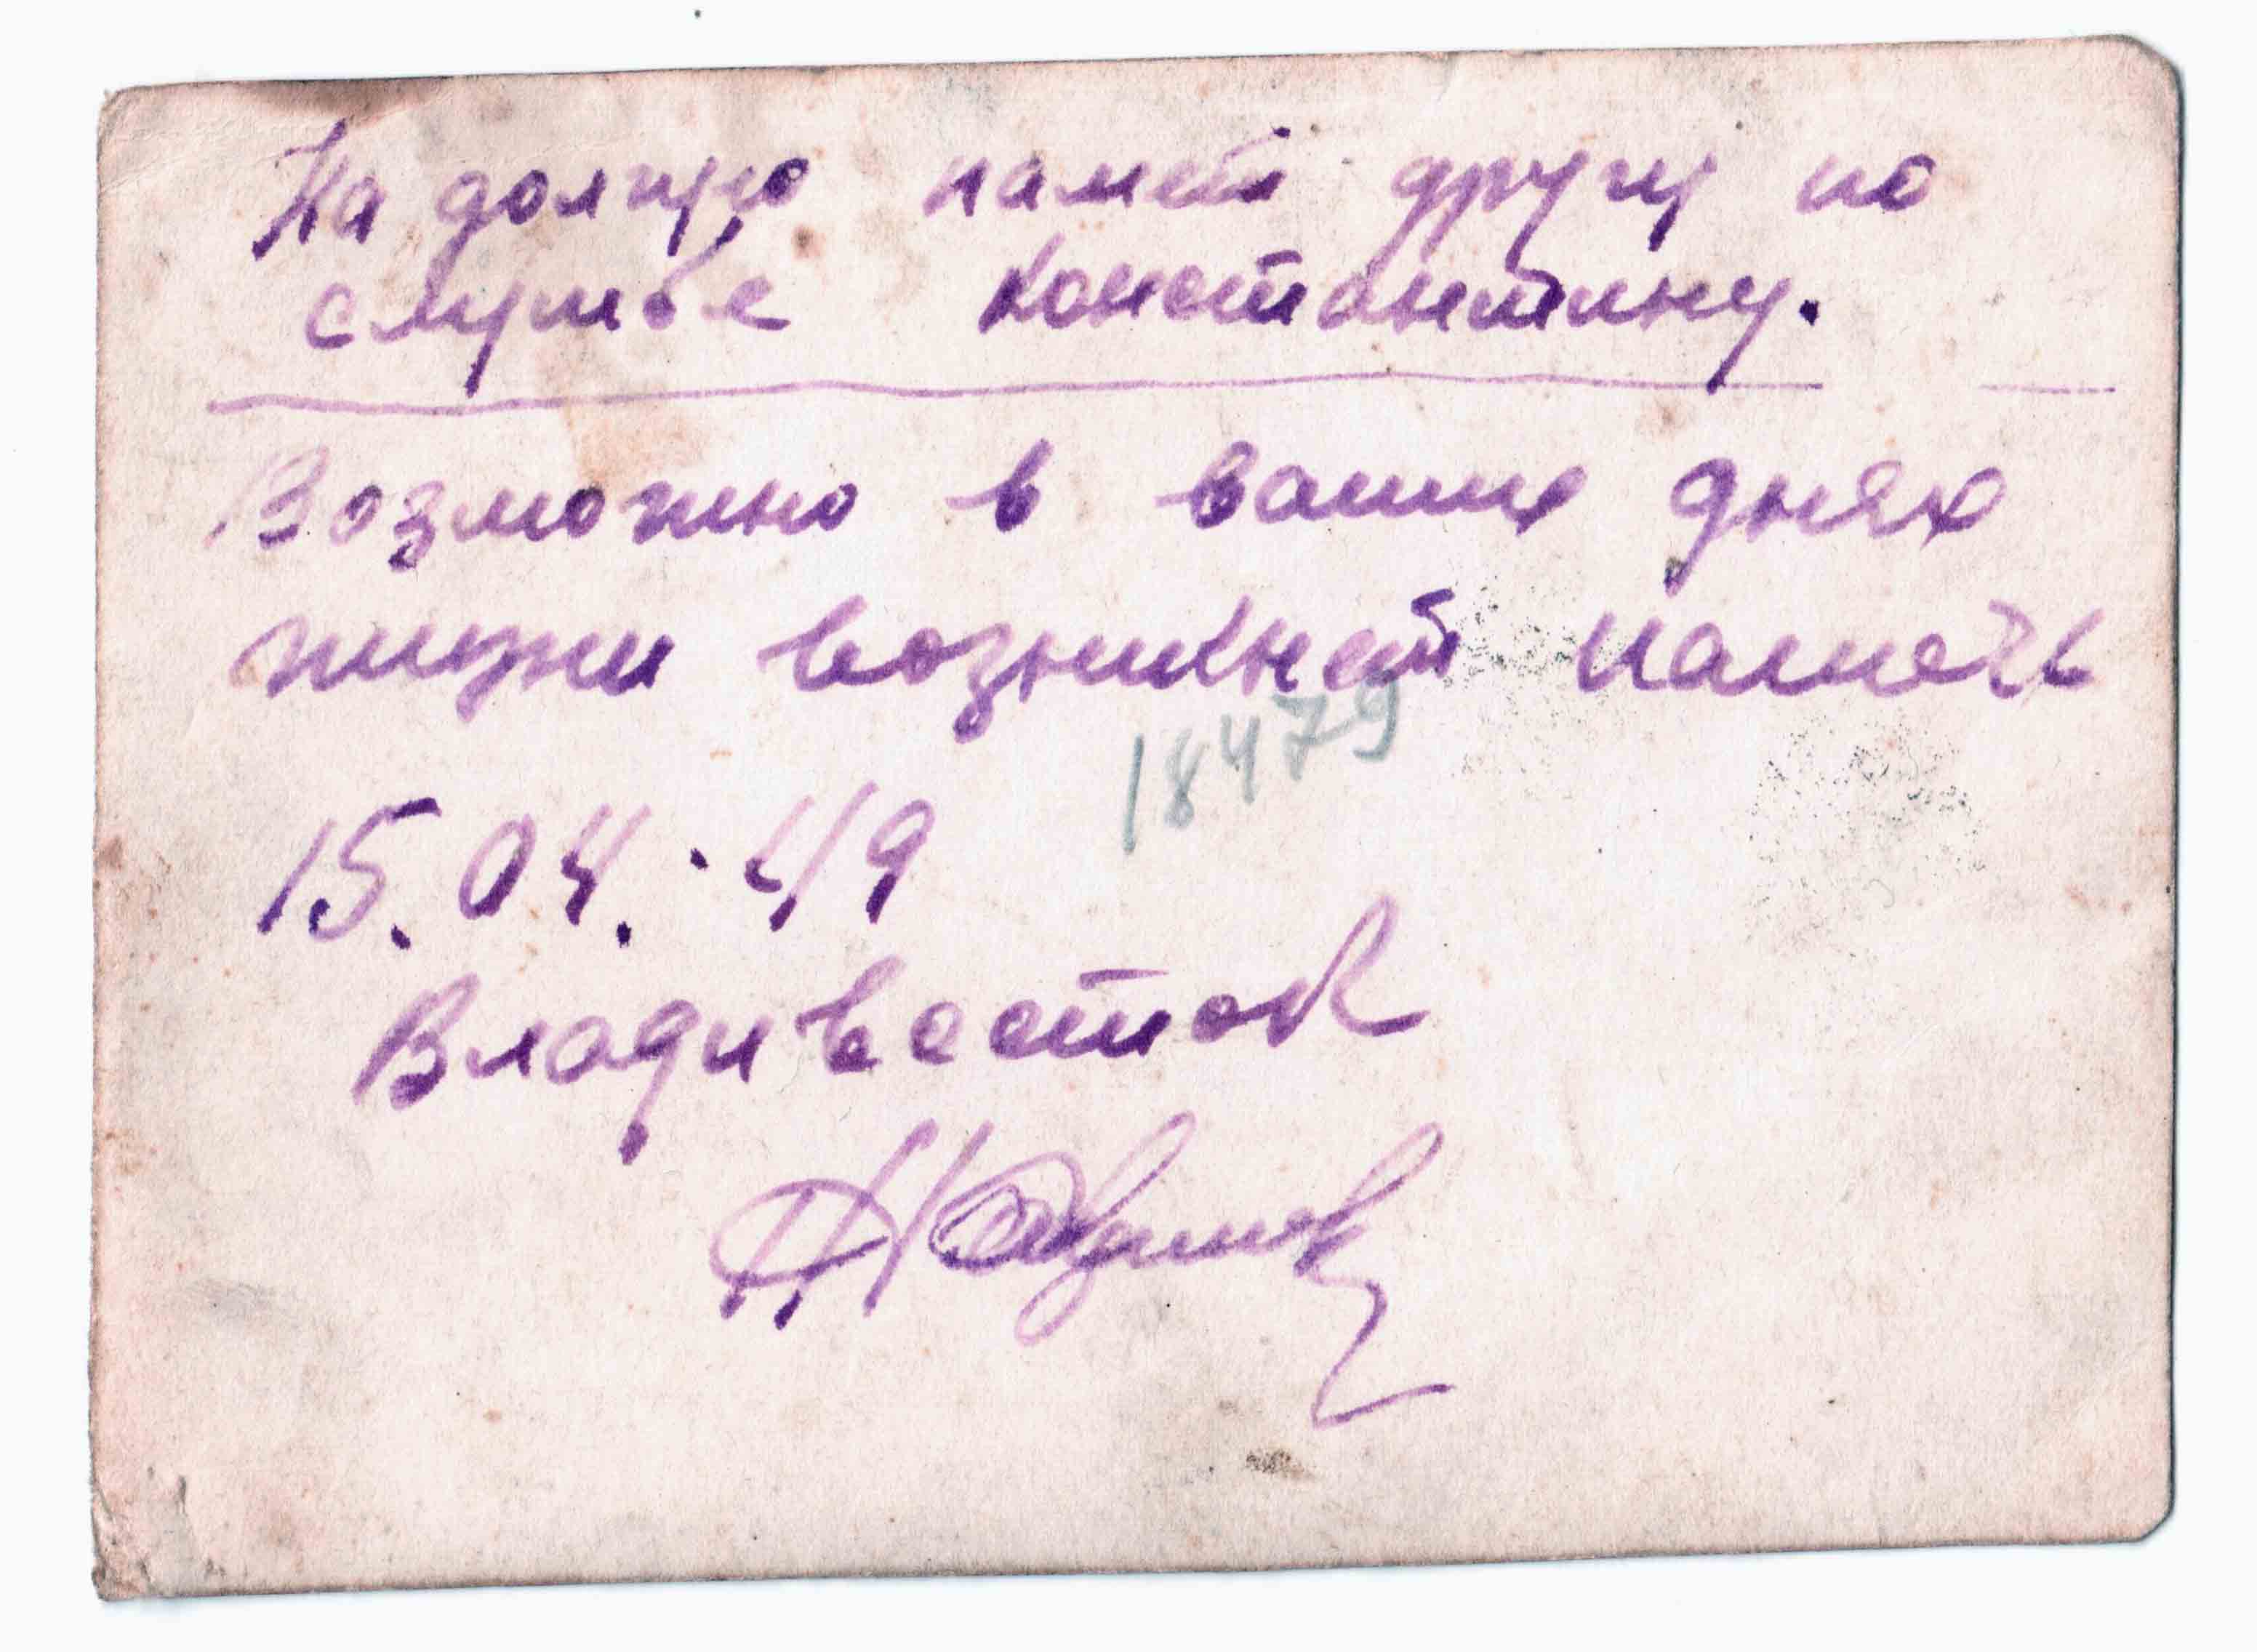 На долгую память другу по
службе Константину.
Возможно в ваших днях
жизни возникнет память
18479
15.04.49
Владивосток